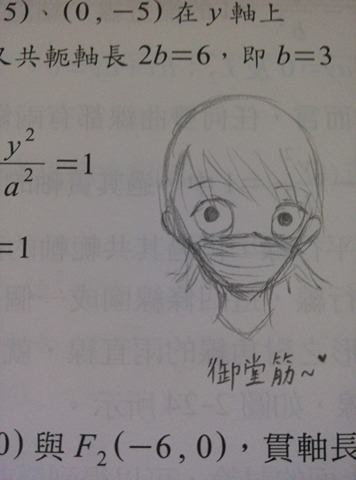 5)、(0, −5) 在 y 軸上
又共軛軸長 2b=6，即 b=3
y²/a² =1
=1
御堂筋~♥
0) 與 F₂(−6, 0)，貫軸長